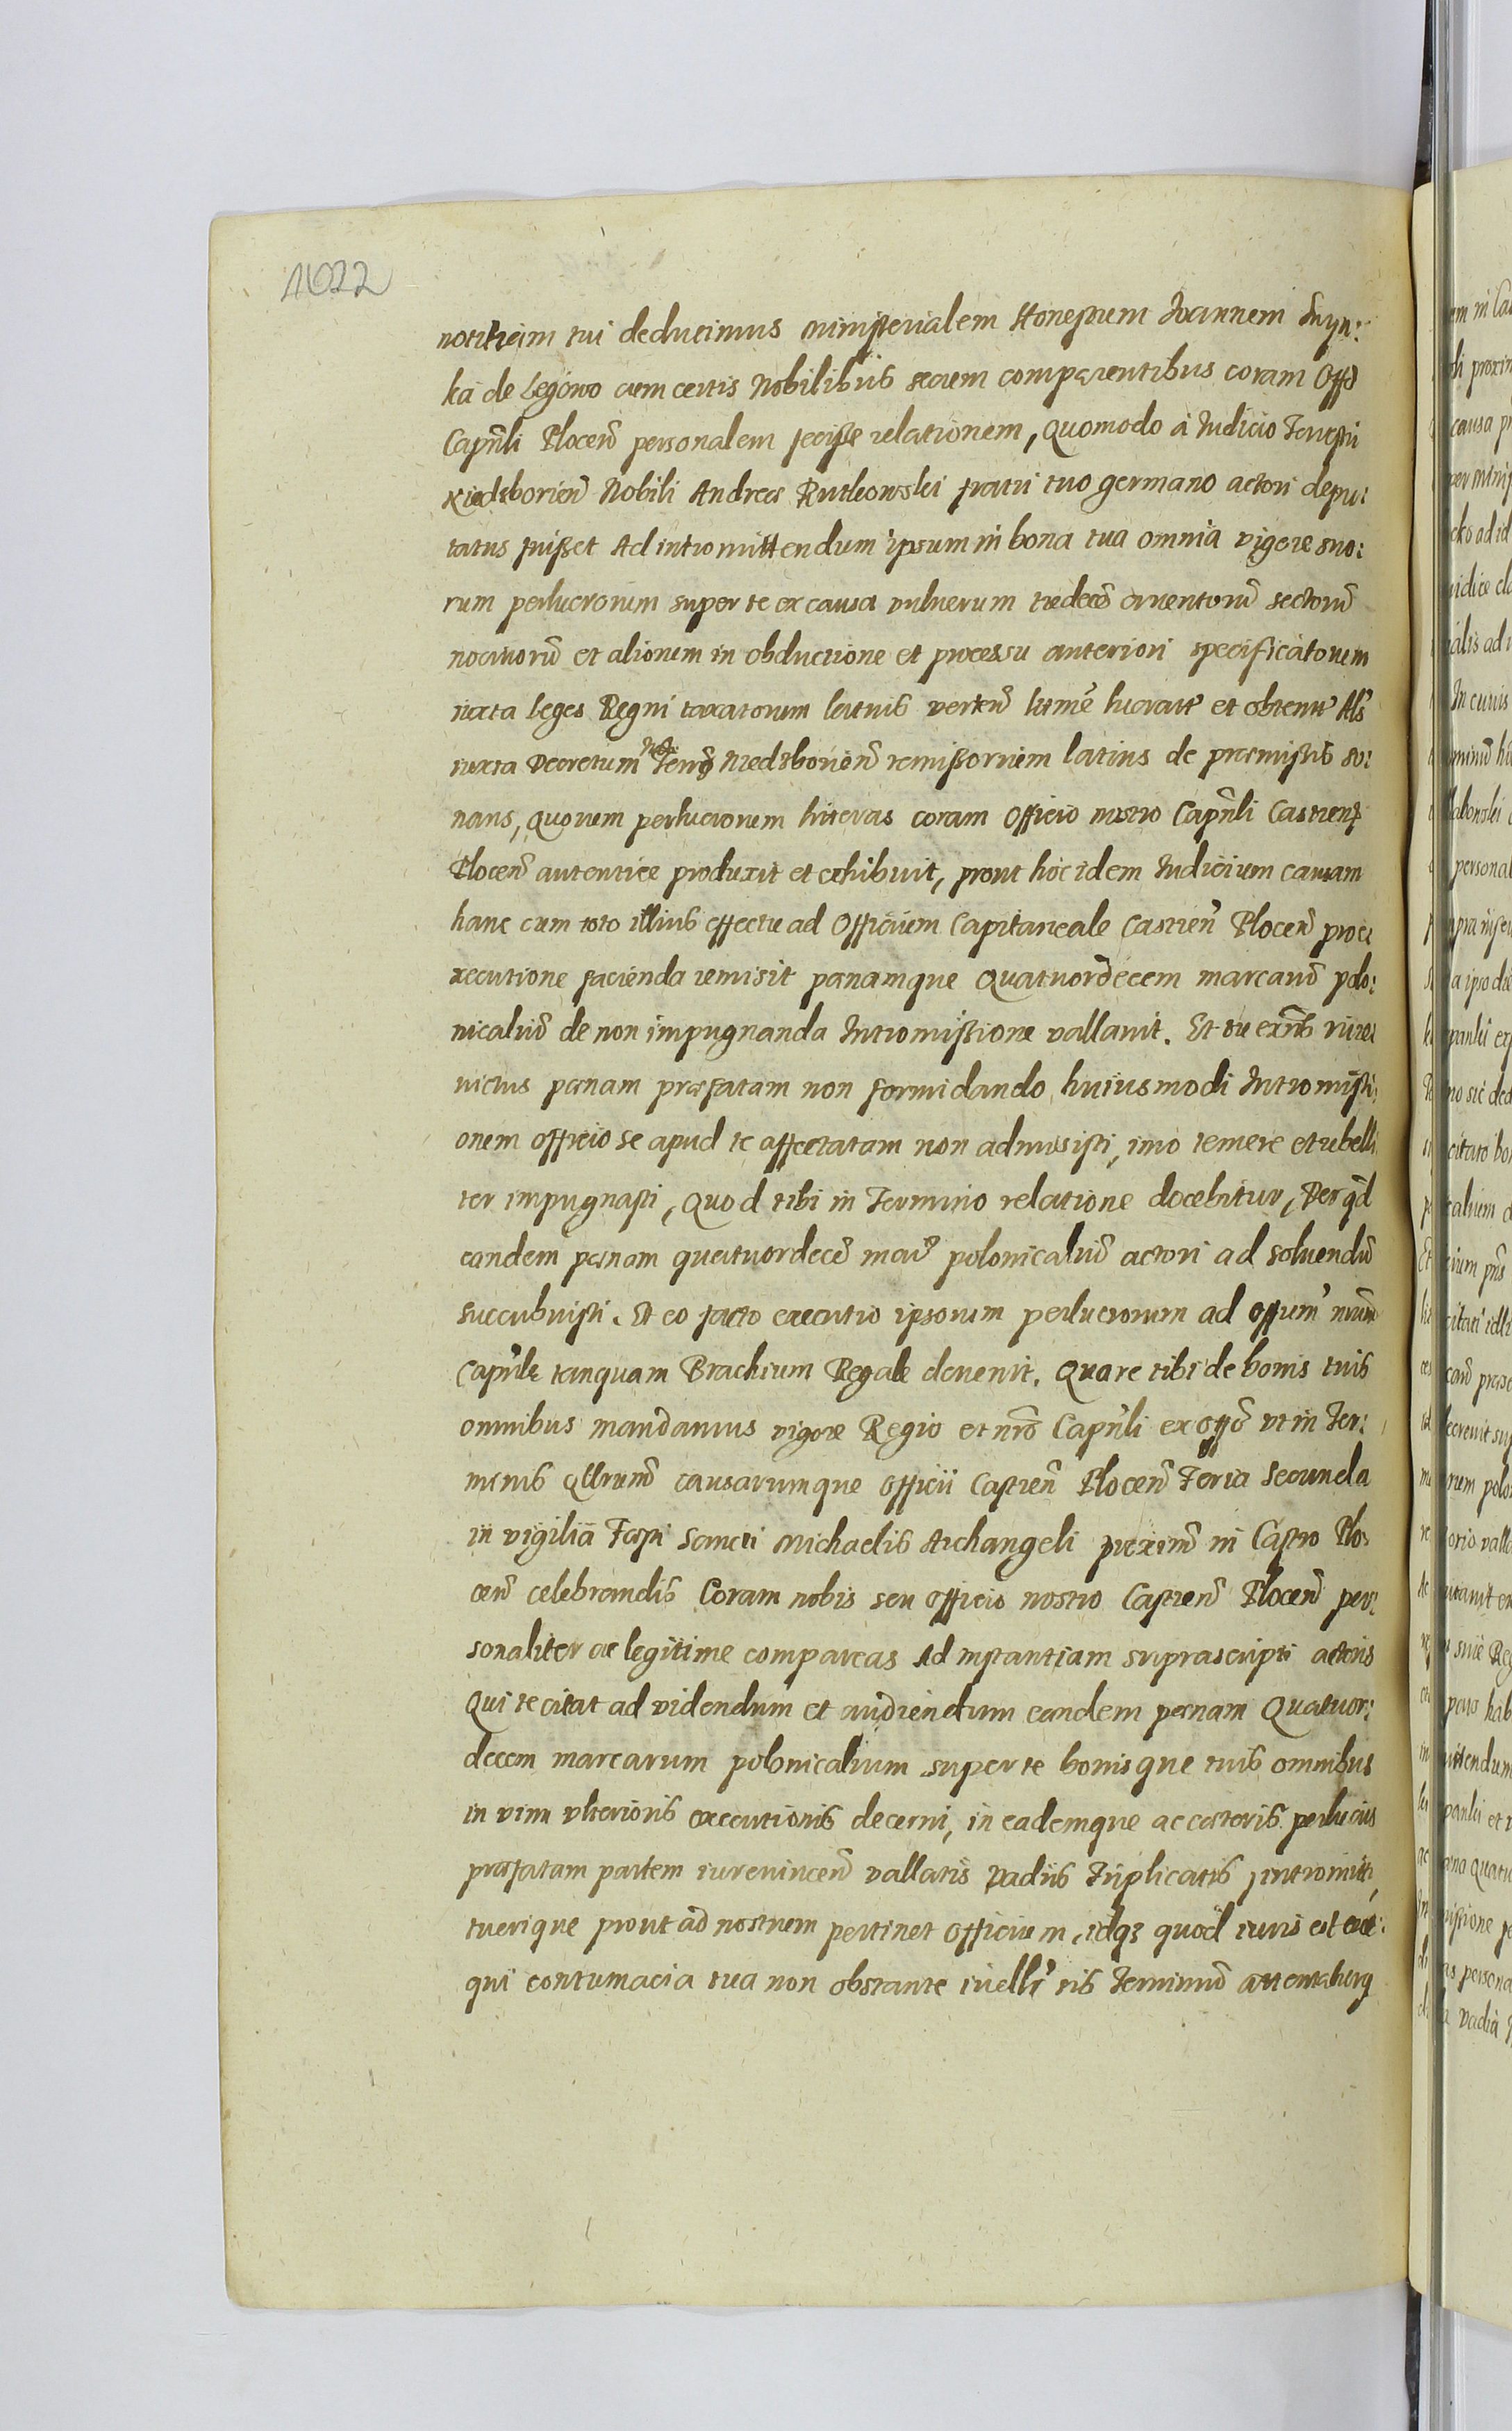 1022
notitiam tui deducimus Ministerialem Honestum Joannem
ka de Legowo cum certis Nobilibus secum comparentibus coram Offo
Capnli Plocen personalem fecisse relationem, Quomodo à Judicio Terrestri
Niedzborien Nobili Andrea Rutkowski fratri tuo germano actori depu:
tatus fuisset Ad intromittendum ipsum in bona tua omnia vigore suo:
rum perlucrorum super te ex causa vulnerum tredecē cruentorū sectorū
nocivorū et aliorum in obductione et processu anteriori specificatorum
iuxta Leges Regni taxatorum et obtent Als
iuxta Decretum Niedzborien remissorium latius de præmissis so:
nans, quorum perlucrorum literas coram Officio nostro Capnli Castren
Plocen autentice produxit et exhibuit, prout hoc idem Judicium causam
hanc cum toto illius effectu ad Officium Capitaneale Castren Plocen pro e
xecutione facienda remisit pænamque Quatuordecem marcarū polo:
nicaliū de non impugnanda Intromissione vallavit. Et tu exñs iure
victus pænam præfatam non formidando, huiusmodi Intromissi:
onem officiose apud te affectatam non admisisti, imo temere et rebelli
ter impugnasti, Quod tibi in Termino relatione docebitur, Per qd
eandem pænam quatuordecē mar polonicaliū actori ad solvendū
succubuisti. Et eo facto executio ipsorum perlucrorum ad Offum nrum
Capnle tanquam Brachium Regale devenit. Quare tibi de bonis tuis
omnibus mandamus vigore Regio et nro Capnli ex offo ut in Ter:
minis Qllrum causarumque Officii Castren Plocen Feria Secunda
in vigilia Festi Sancti Michaelis Archangeli proximē in Castro Plo:
cen celebrandis Coram nobis seu officio nostro Castren Plocen per:
sonaliter ac legitime compareas Ad instantiam suprascripti actoris
Qui te citat ad videndum et audiendum eandem pænam Quatuor:
decem marcarum polonicalium super te bonisque tuis omnibus
in vim ulterioris executionis decerni, in eademque ac cæteris perlucris
præfatam partem iurevincen vallatis Vadiis Triplicatis intromitti,
tuerique prout ad nostrum pertinet Officium, idq3 quod iuris est exe:
qui contumacia tua non obstante Terminū attentaturq